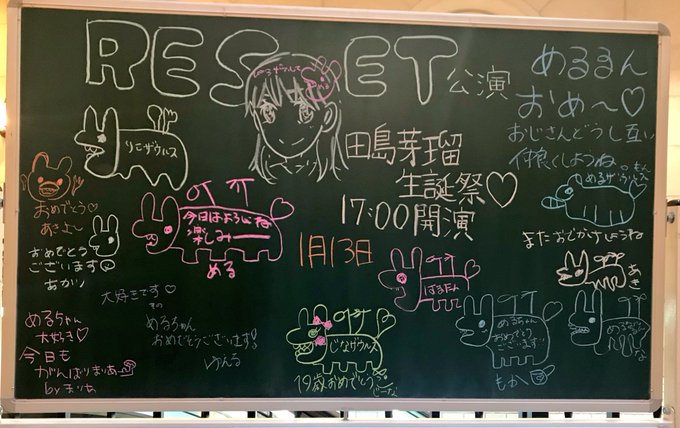 RESET
公演
田島芽瑠
生誕祭♡
17:00開演
1月13日
めるるん
おめ〜♡
おじさんどうし互い
仲良くしようね。
またおでかけしようね
りこザウルス
おめでとう♡
あきよ〜
おめでとう
ございます
あかり
今日はよろしくね
楽しみー
める
はるたん
あき
大好きです♡
めるちゃん
おめでとうございます!
ゆえる
めるちゃん
大好き♡
今日も
がんばりまりあ〜
by まりあ
じなザウルス
19歳おめでとう
じーな
めるちゃん
おめでとう
ございます!!
もか